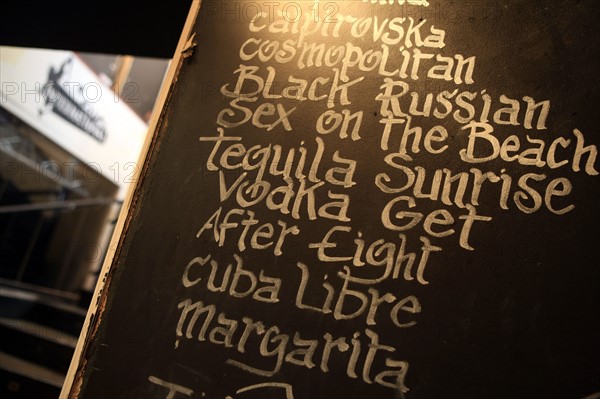 caipirovska
cosmopolitan
Black Russian
Sex on the Beach
Tequila Sunrise
Vodka Get
After Eight
Cuba Libre
margarita